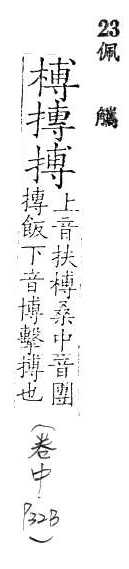 23佩觿
榑摶搏
上音扶榑桑中音團
摶飯下音博擊搏也
(卷中
P32B)